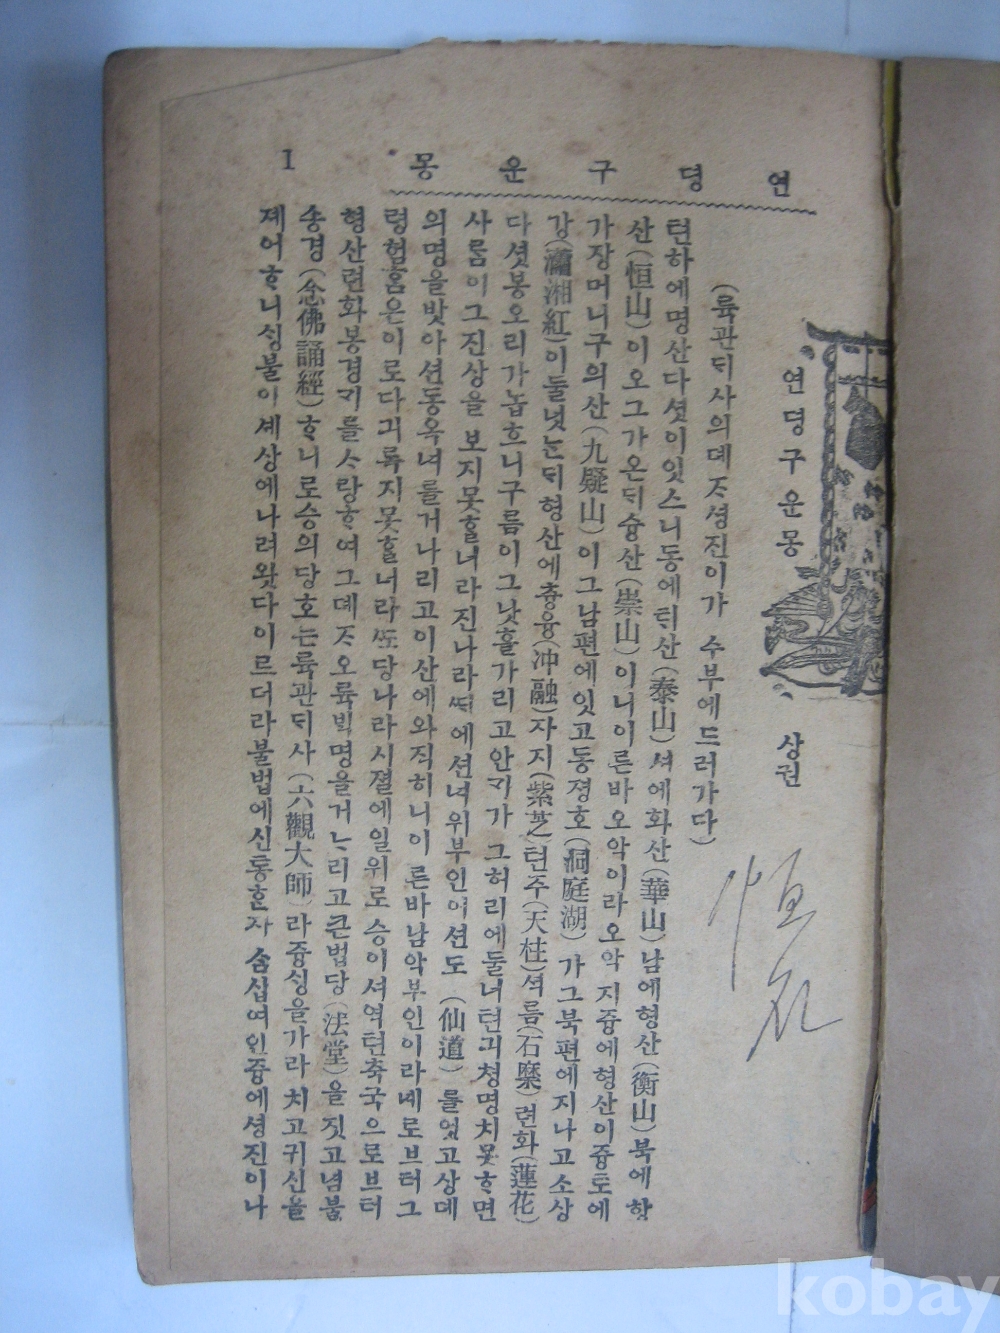 연뎡구운몽
1
연뎡구운몽 상권
(륙관ᄃᆡ사의뎨ᄌᆞ셩진이가 수부에드러가다)
텬하에명산다섯이잇스니동에ᄐᆡ산(泰山)셔에화산(華山)남에형산(衡山)북에항
산(恒山)이오그가온ᄃᆡ슝산(崇山)이니이른바오악이라오악지즁에형산이즁토에
가장머니구의산(九疑山)이그남편에잇고동졍호(洞庭湖)가그북편에지나고소상
강(瀟湘紅)이둘넛ᄂᆞᆫᄃᆡ형산에츙융(冲融)자지(紫芝)텬주(天柱)셕름(石廩)련화(蓮花)
다섯봉오리가놉흐니구름이그낫흘가리고안ᄀᆡ가 그허리에둘녀텬긔쳥명치못ᄒᆞ면
사ᄅᆞᆷ이그진상을 보지못ᄒᆞᆯ너라진나라ᄯᅢ에션녀위부인이션도(仙道)를엇고상뎨
의명을밧아션동옥녀를거나리고이산에와직히니이른바남악부인이라녜로브터그
령험홈은이로다긔록지못ᄒᆞᆯ너라ᄯᅩ당나라시졀에일위로승이셔역텬축국으로브터
형산련화봉경ᄀᆡ를ᄉᆞ랑ᄒᆞ여그뎨ᄌᆞ오륙ᄇᆡᆨ명을거ᄂᆞ리고큰법당(法堂)을짓고념불
송경(念佛誦經)ᄒᆞ니로승의당호ᄂᆞᆫ륙관ᄃᆡ사(六觀大師)라즁ᄉᆡᆼ을가라치고귀신을
졔어ᄒᆞ니ᄉᆡᆼ불이셰상에나려왓다이르더라불법에신통ᄒᆞᆫ자 솜십여인즁에셩진이나
恒
kobay